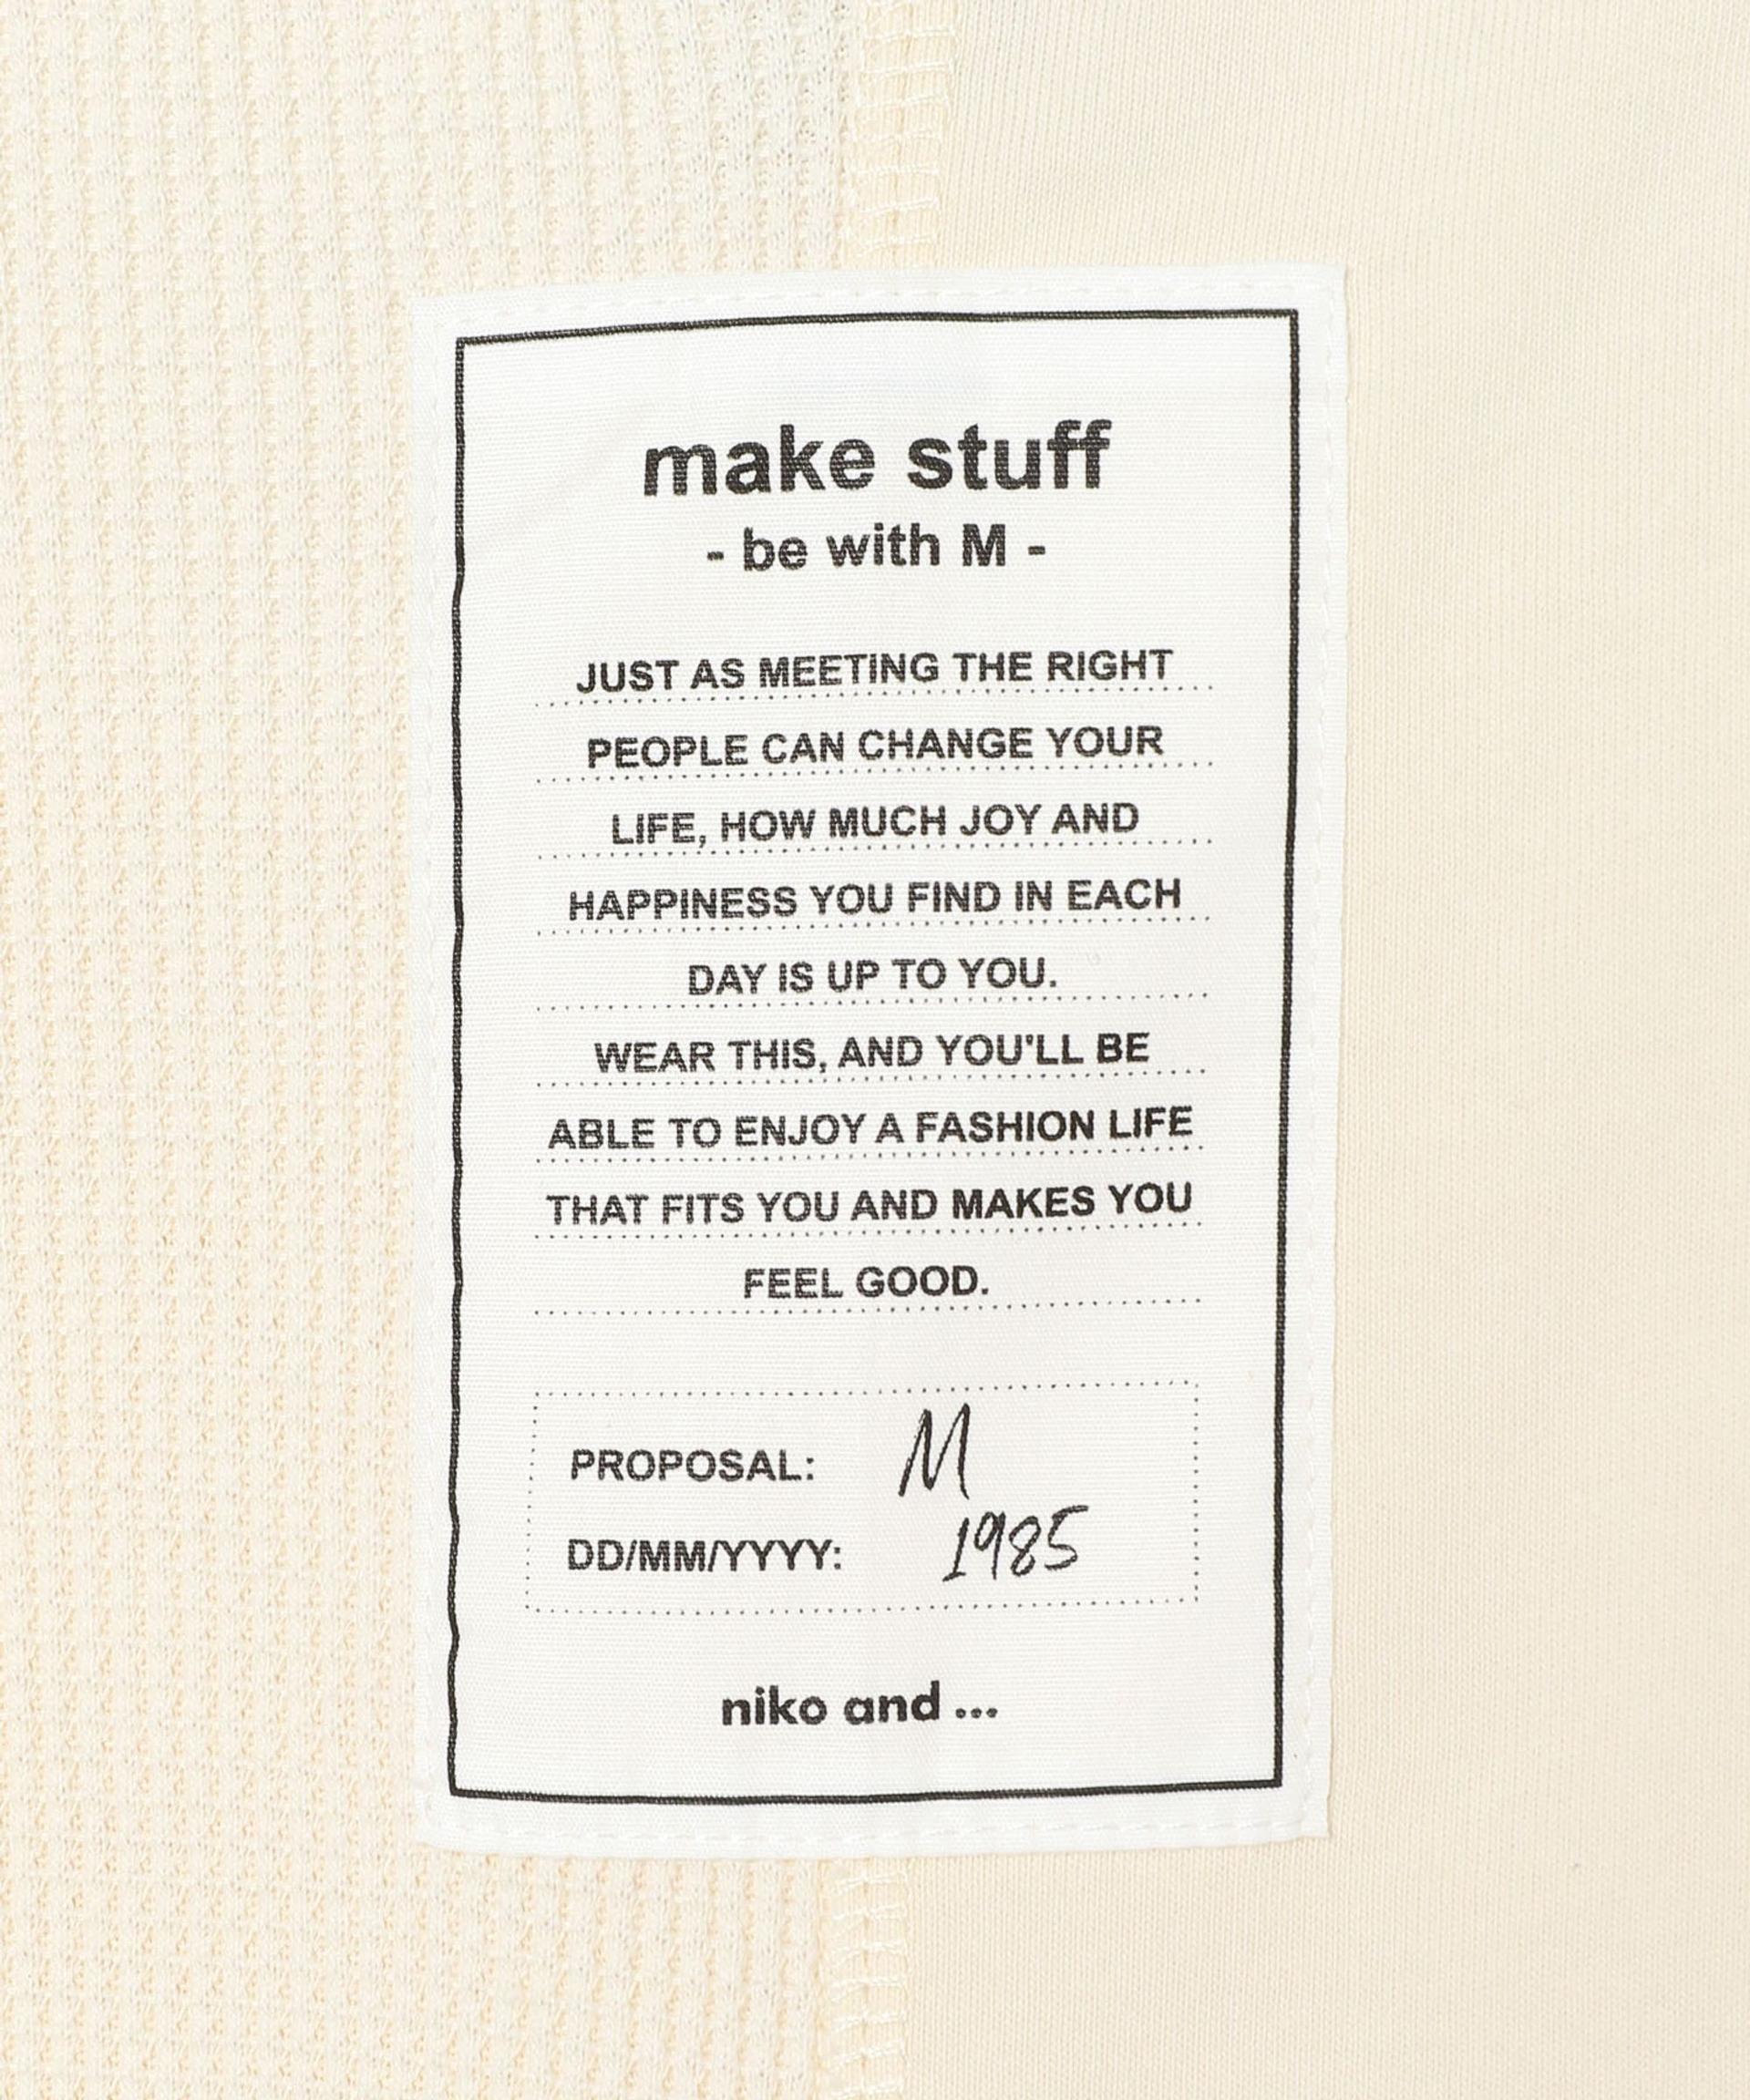 make stuff
- be with M -
JUST AS MEETING THE RIGHT
PEOPLE CAN CHANGE YOUR
LIFE, HOW MUCH JOY AND
HAPPINESS YOU FIND IN EACH
DAY IS UP TO YOU.
WEAR THIS, AND YOU'LL BE
ABLE TO ENJOY A FASHION LIFE
THAT FITS YOU AND MAKES YOU
FEEL GOOD.
PROPOSAL: M
DD/MM/YYYY: 1985
niko and ...